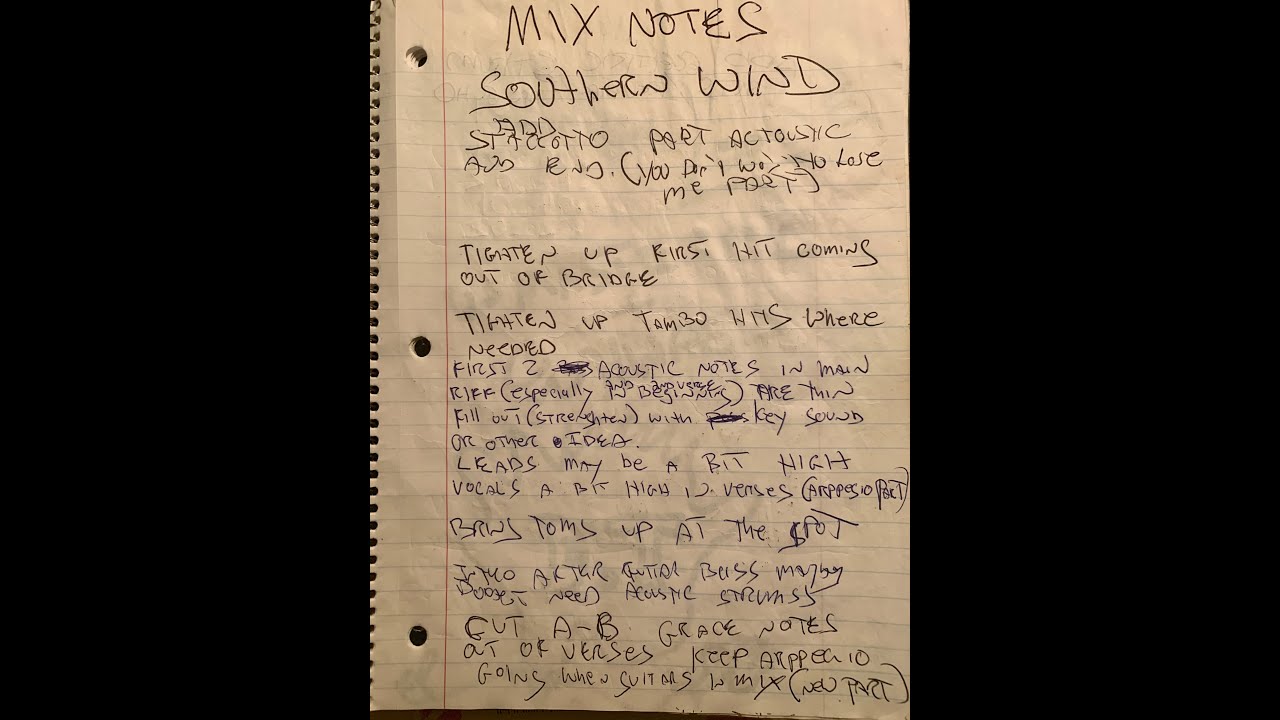 MIX NOTES
SOUTHERN WIND
ADD
STACCOTTO PART ACTOUSTIC
AND END. (YOU DON'T NO LOSE
ME PART)
TIGHTEN UP FIRST HIT COMING
OUT OF BRIDGE
TIGHTEN UP TAMBO HITS WHERE
NEEDED
FIRST 2 ACOUSTIC NOTES IN MAIN
AND
RIFF (ESPECIALLY IN BEGINNING) ARE THIN
FILL OUT (STRENGHTEN) WITH KEY SOUND
OR OTHER IDEA.
LEADS MAY BE A BIT HIGH
VOCALS A BIT HIGH IN VERSES (ARPPEGIO PART)
BRING TOMS UP AT THE SPOT
INTRO AFTER GUITAR BASS MAYBE
NEED ACOUSTIC STRUMSS
CUT A-B GRACE NOTES
OUT OF VERSES KEEP ARPPEGIO
GOING WHEN GUITARS IN MIX (NEW PART)